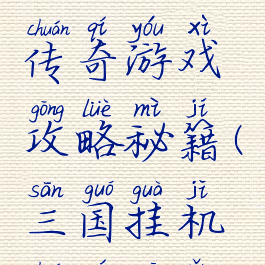 chuán qí yóu xì
传奇游戏
gōng lüè mì jí
攻略秘籍(
sān guó guà jī
三国挂机